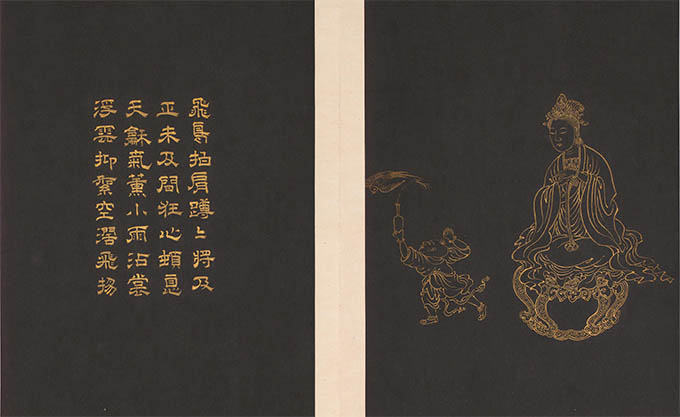 飛鳥拍肩蹲〻將及
正未及間狂心頓息
天龢氣薰小雨沾裳
浮雲抑空飛揚